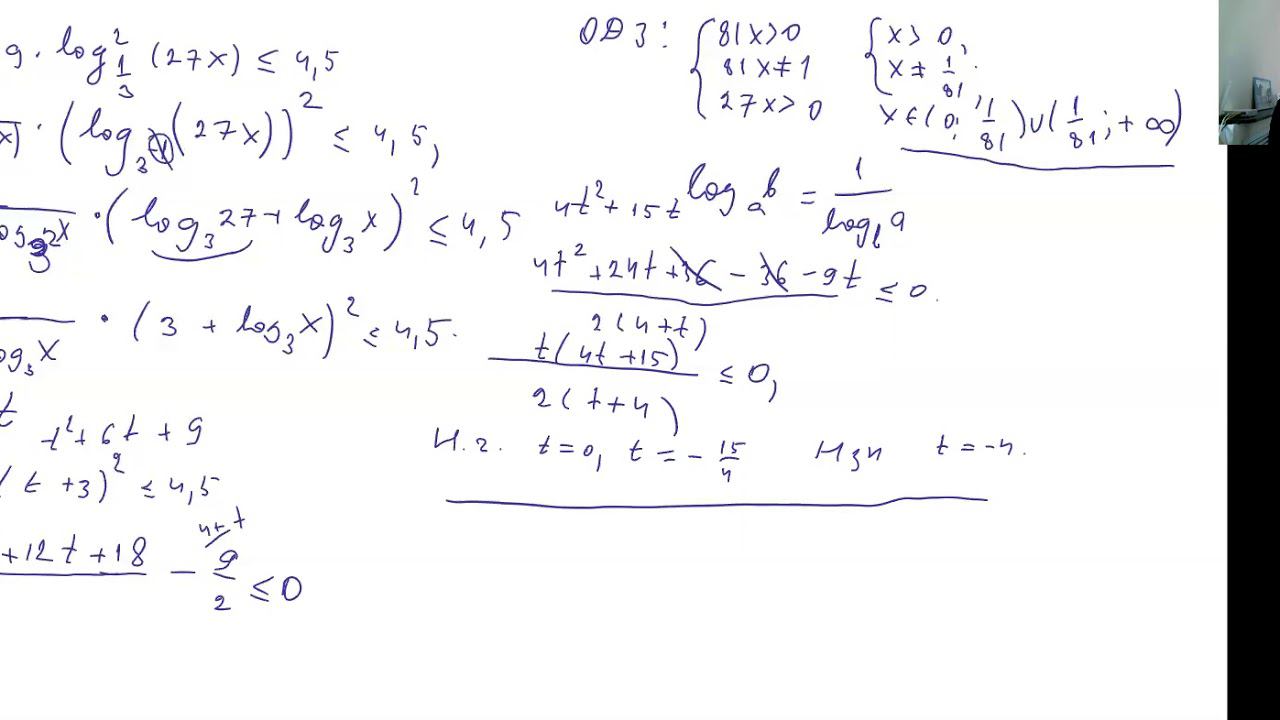 9 · log²_{1/3} (27x) ≤ 4,5
x) · (log_3 (27x))² ≤ 4,5,
· (log_3 27 + log_3 x)² ≤ 4,5
· (3 + log_3 x)² ≤ 4,5.
og_3 x
t
t² + 6t + 9
(t + 3)² ≤ 4,5
4+t
+12t + 18 − 9/2 ≤ 0
ОДЗ:
{ 81x > 0
81x ≠ 1
27x > 0
{ x > 0,
x ≠ 1/81,
x ∈ (0; 1/81) ∪ (1/81; +∞)
4t² + 15t
log_a b = 1 / log_b a
(4t² + 24t + 36 − 36 − 9t) / (2(4+t)) ≤ 0.
t(4t + 15) / (2(t+4)) ≤ 0,
Н.г. t = 0, t = − 15/4 Нзн t = −4.